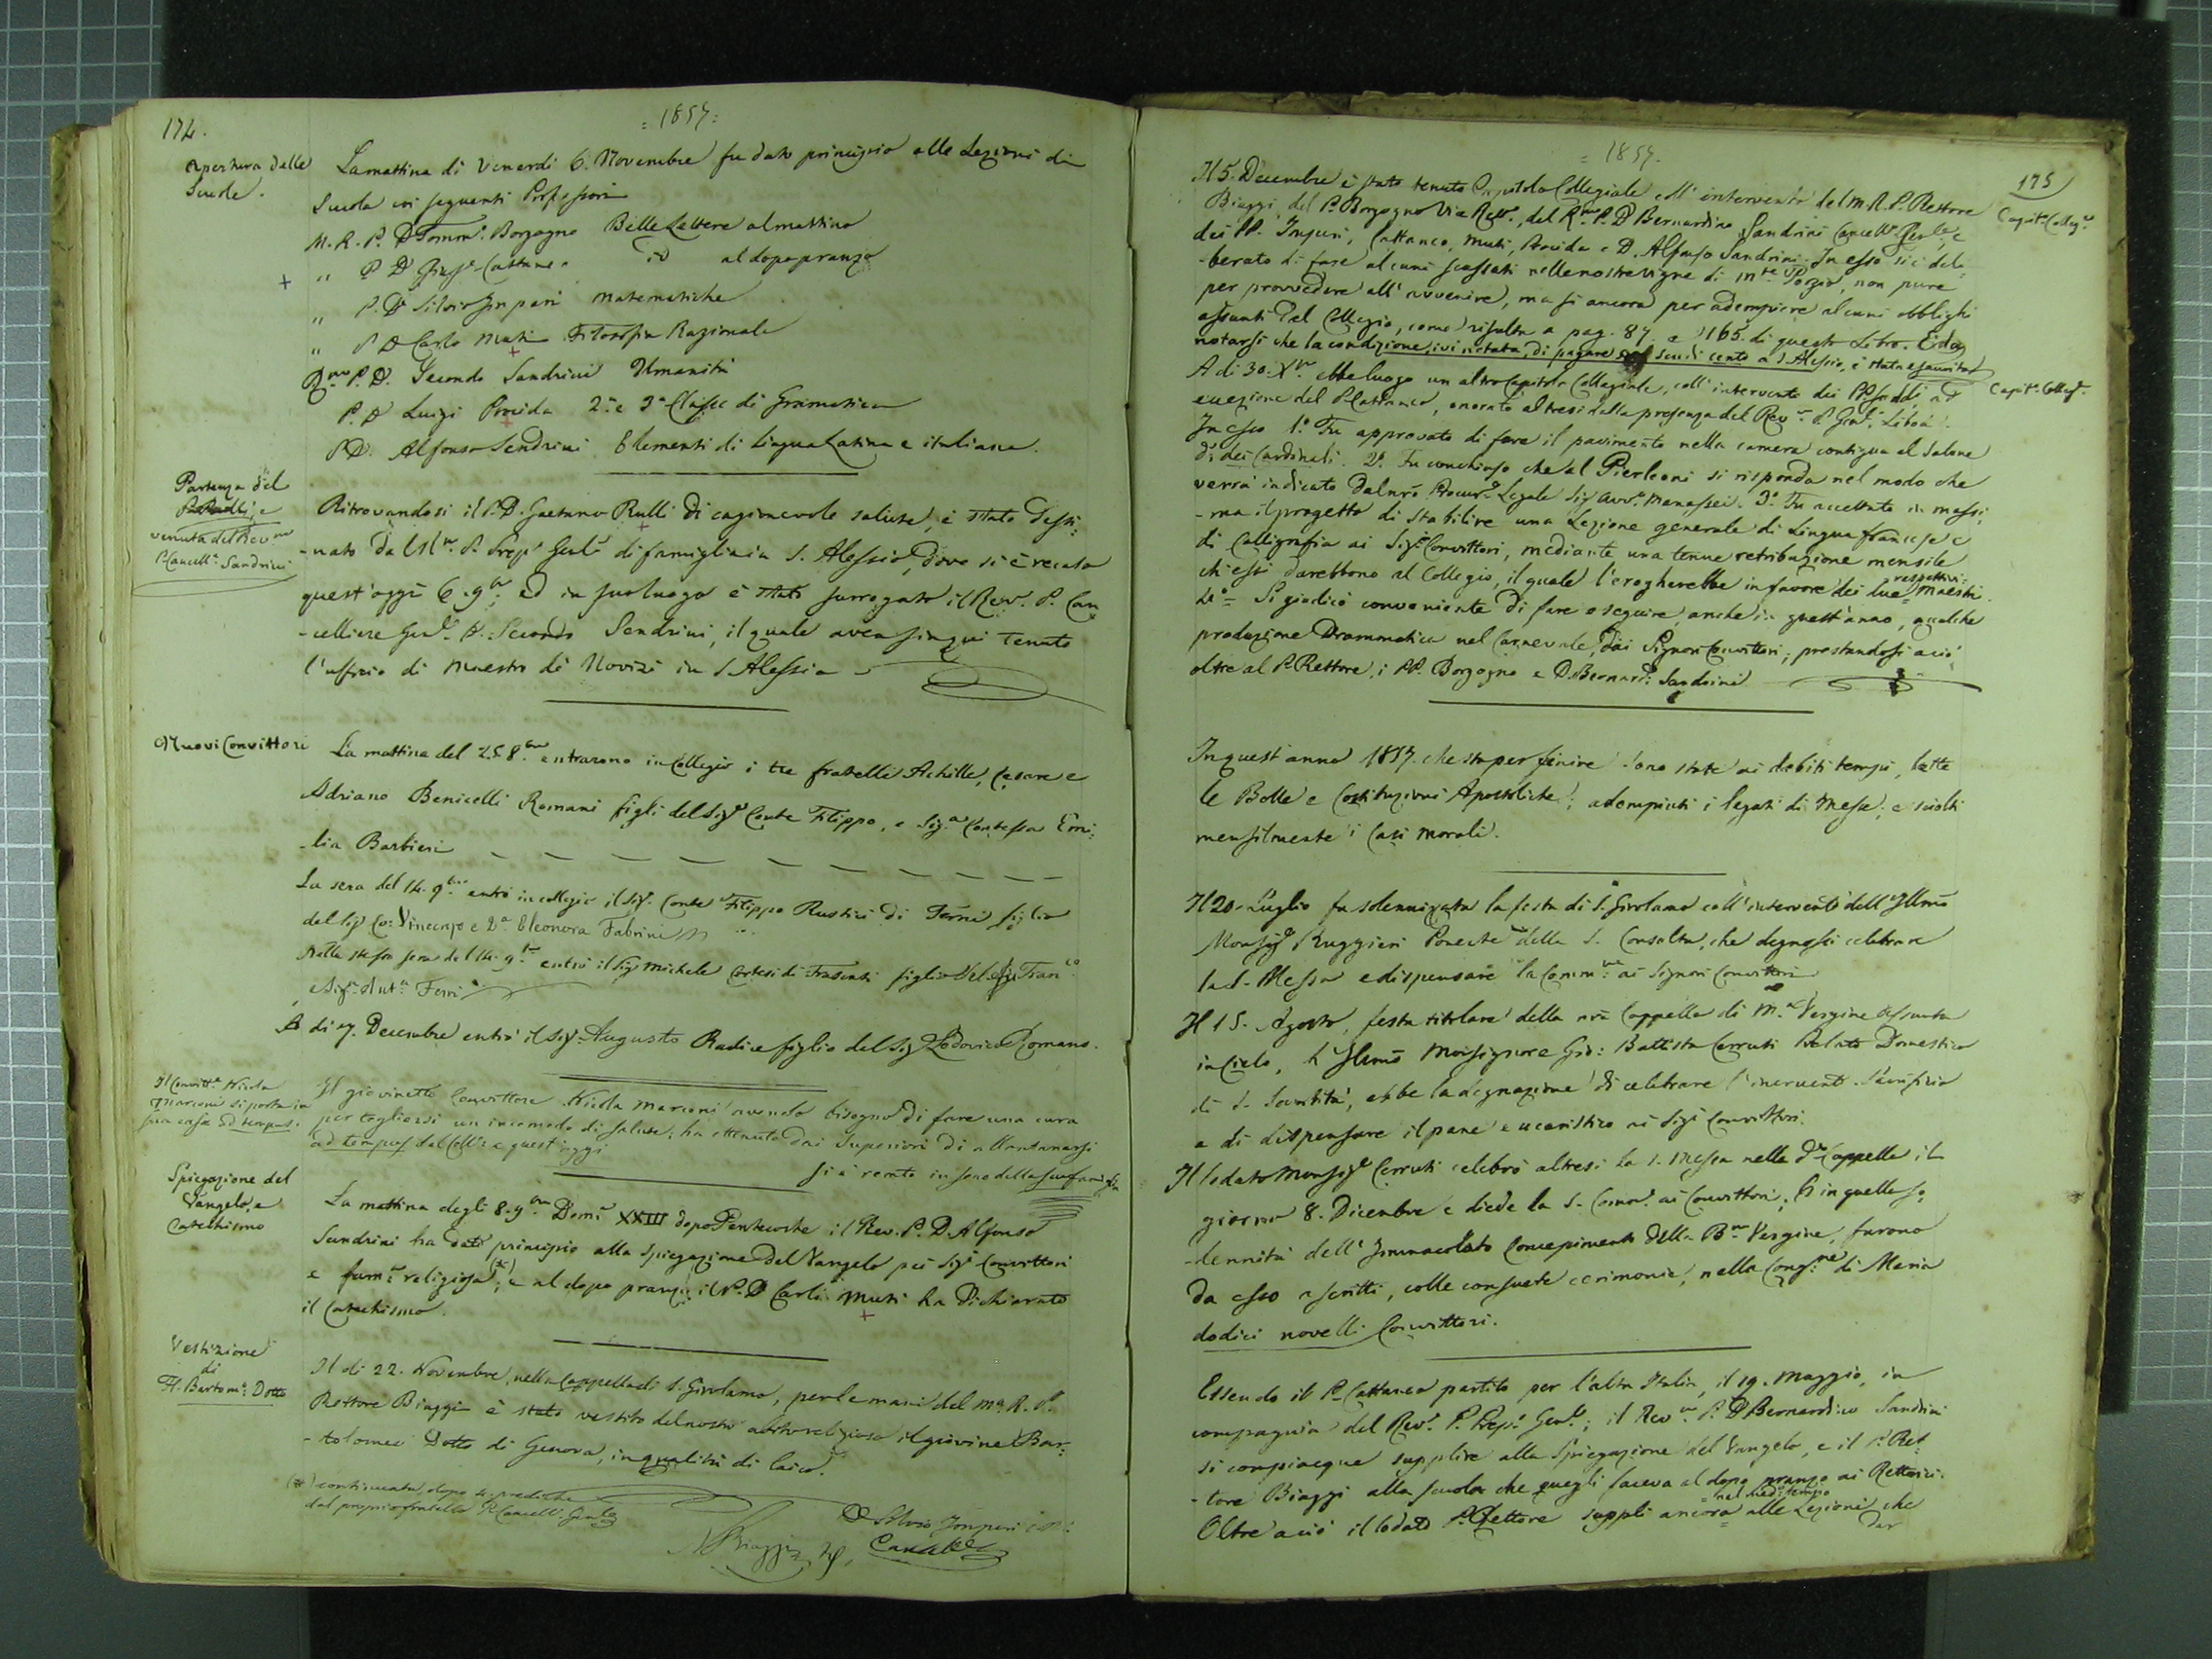 174.
= 1857=
Apertura delle
Scuole.
La mattina di Venerdì 6. Novembre fu dato principio alle Lezioni di
Scuola coi seguenti Professori
M. R. P. D. Tomm.o Borgogno Belle Lettere al mattino
" P. D. Gius.e Cattaneo id al dopo pranzo
" P. D. Silvio Imperi Matematiche
" P. D. Carlo Muti Filosofia Razionale
R.mo P. D. Secondo Sandrini Umanità
P. D. Luigi Procida 2.a e 3.a Classe di Gramatica
P. D. Alfonso Sandrini Elementi di Lingua Latina e italiana.
Partenza del
P. Rulli, e
venuta del Rev.mo
P. Cancell.e Sandrini
Ritrovandosi il P. D. Gaetano Rulli di cagionevole salute, è stato desti=
-nato dal R.mo P. Prep.o Gen.le di famiglia in S. Alessio, dove si è recato
quest'oggi 6. 9bre, ed in suo luogo è stato surrogato il Rev.o P. Can
-celliere Gen.le D. Secondo Sandrini, il quale avea sin qui tenuto
l'uffizio di Maestro dè Novizi in S. Alessio
Nuovi Convittori
La mattina del 25 8bre entrarono in Collegio i tre fratelli Achille, Cesare e
Adriano Benicelli Romani figli del Sig.e Conte Filippo, e Sig.a Contessa Emi=
-lia Barbieri
La sera del 14. 9bre entrò in collegio il Sig.r Conte Filippo Rustici di Terni figlio
del Sig Co: Vincenzo e D.a Eleonora Fabrini
Nella stessa sera del 14. 9bre entrò il Sig Michele Cortesi di Frascati figlio del Sig Fran.co
e Sig.a Ant.a Ferri
A di 7. Decembre entrò il Sig.r Augusto Radice figlio del Sig Lodovico Romano.
Il Convitt.e Nicola
Marconi si porta in
sua casa ad tempus.
Il giovinetto Convittore Nicola Marconi avendo bisogno di fare una cura
per togliersi un incomodo di salute, ha ottenuto dai Superiori di allontanarsi
ad tempus dal Coll.o e quest'oggi
si è recato in seno della sua famiglia
Spiegazione del
Vangelo, e
Catechismo
La mattina degli 8. 9bre Dom.a XXIII dopo Pentecoste il Rev. P. D. Alfonso
Sandrini ha dato principio alla Spiegazione del Vangelo pei Sig.i Convittori
e fam.a religiosa (*); e al dopo pranzo il P. D. Carlo Muti ha dichiarato
il Catechismo.
Vestizione
di
F. Bartom.o Dotto
Il di 22. Novembre, nella Cappella di S. Girolamo, per le mani del M.o R. P.
Rettore Biaggi è stato vestito del nostro abito religioso il giovine Bar=
-tolomeo Dotto di Genova, in qualità di laico.
(*) continuata, dopo 4. prediche
dal proprio fratello P. Cancell. Gen.le
D. Silvio Imperi
Biaggi
Cancell.e
= 1857.
175
Il 5. Decembre è stato tenuto Capitolo Collegiale coll'intervento del M. R. P. Rettore
Capit.o Colleg.e
Biaggi, del P. Borgogno Vic. Rett.e, del R.mo P. D. Bernardino Sandrini Cancell.e Gen.le, e
dei PP. Imperi, Cattaneo, Muti, Procida e D. Alfonso Sandrini. In esso si è deli=
-berato di fare alcuni scassati nelle nostre vigne di M.te Porzio, non pure
per provvedere all'avvenire, ma si ancora per adempiere alcuni obblighi
assunti dal Collegio, come risulta a pag. 87. e 165. di questo Libro. È da
notarsi che la condizione, ivi notata, di pagare scudi cento a S. Alessio, è stata esaurita
A di 30. Xbre ebbe luogo un altro Capitolo Collegiale, coll'intervento dei PP. suddi ad
Capit.o Colleg.e
eccezione del P. Cattaneo, onorato altresì dalla presenza del Rev.mo P. Gen.le Libois.
In esso 1.o Fu approvato di fare il pavimento nella camera contigua al Salone
di dei Cardinali. 2.o Fu conchiuso che al Pierleoni si risponda nel modo che
verrà indicato dal nro Procur.e Legale Sig Avv.o Manassei. 3.o Fu accettato in massi=
-ma il progetto di stabilire una Lezione generale di Lingua francese e
di Calligrafia ai Sig.i Convittori, mediante una tenue retribuzione mensile
ch'essi darebbono al Collegio, il quale l'erogherebbe in favore dei due respettivi maestri.
4.o Si giudicò conveniente di fare eseguire, anche in quest'anno, qualche
produzione Drammatica nel Carnevale, dai Signori Convittori; prestandosi a ciò
oltre al P. Rettore, i PP. Borgogno e D. Bernard.o Sandrini
In quest'anno 1857. che sta per finire sono state ai debiti tempi, lette
le Bolle e Costituzioni Apostoliche; adempiuti i legati di Messe; e sciolti
mensilmente i Casi Morali.
Il 20. Luglio fu solennizzata la festa di S. Girolamo coll'intervento dell'Illmo
Monsig.e Ruggieri Ponente della S. Consulta, che degnossi celebrare
la S. Messa e dispensare la Comm.ne ai Signori Convittori
Il 15. Agosto, festa titolare della nra Cappella di M.a Vergine Assunta
in Cielo, l'Illmo Monsignore Gio: Battista Cerruti Prelato Domestico
di S. Santità, ebbe la degnazione di celebrare l'incruento Sacrifizio
e di dispensare il pane eucaristico ai Sig.i Convittori.
Il lodato Monsig.e Cerruti celebrò altresì la S. Messa nella d.a Cappella il
giorno 8. Dicembre e diede la S. Comm.e ai Convittori. E in quella so=
-lennità dell'Immacolato Concepimento della B.ma Vergine, furono
da esso ascritti, colle consuete cerimonie, nella Cong.ne di Maria
dodici novelli Convittori.
Essendo il P. Cattaneo partito per l'alta Italia, il 19. Maggio, in
compagnia del Rev.o P. Prep.o Gen.le; il Rev.mo P. D. Bernardino Sandrini
si compiacque supplire alla Spiegazione del Vangelo, e il P. Ret=
-tore Biaggi alla scuola che quegli faceva al dopo pranzo ai Rettorici.
Oltre a ciò il lodato P. Rettore supplì ancora =nel med.o tempo= alle Lezioni che
dar